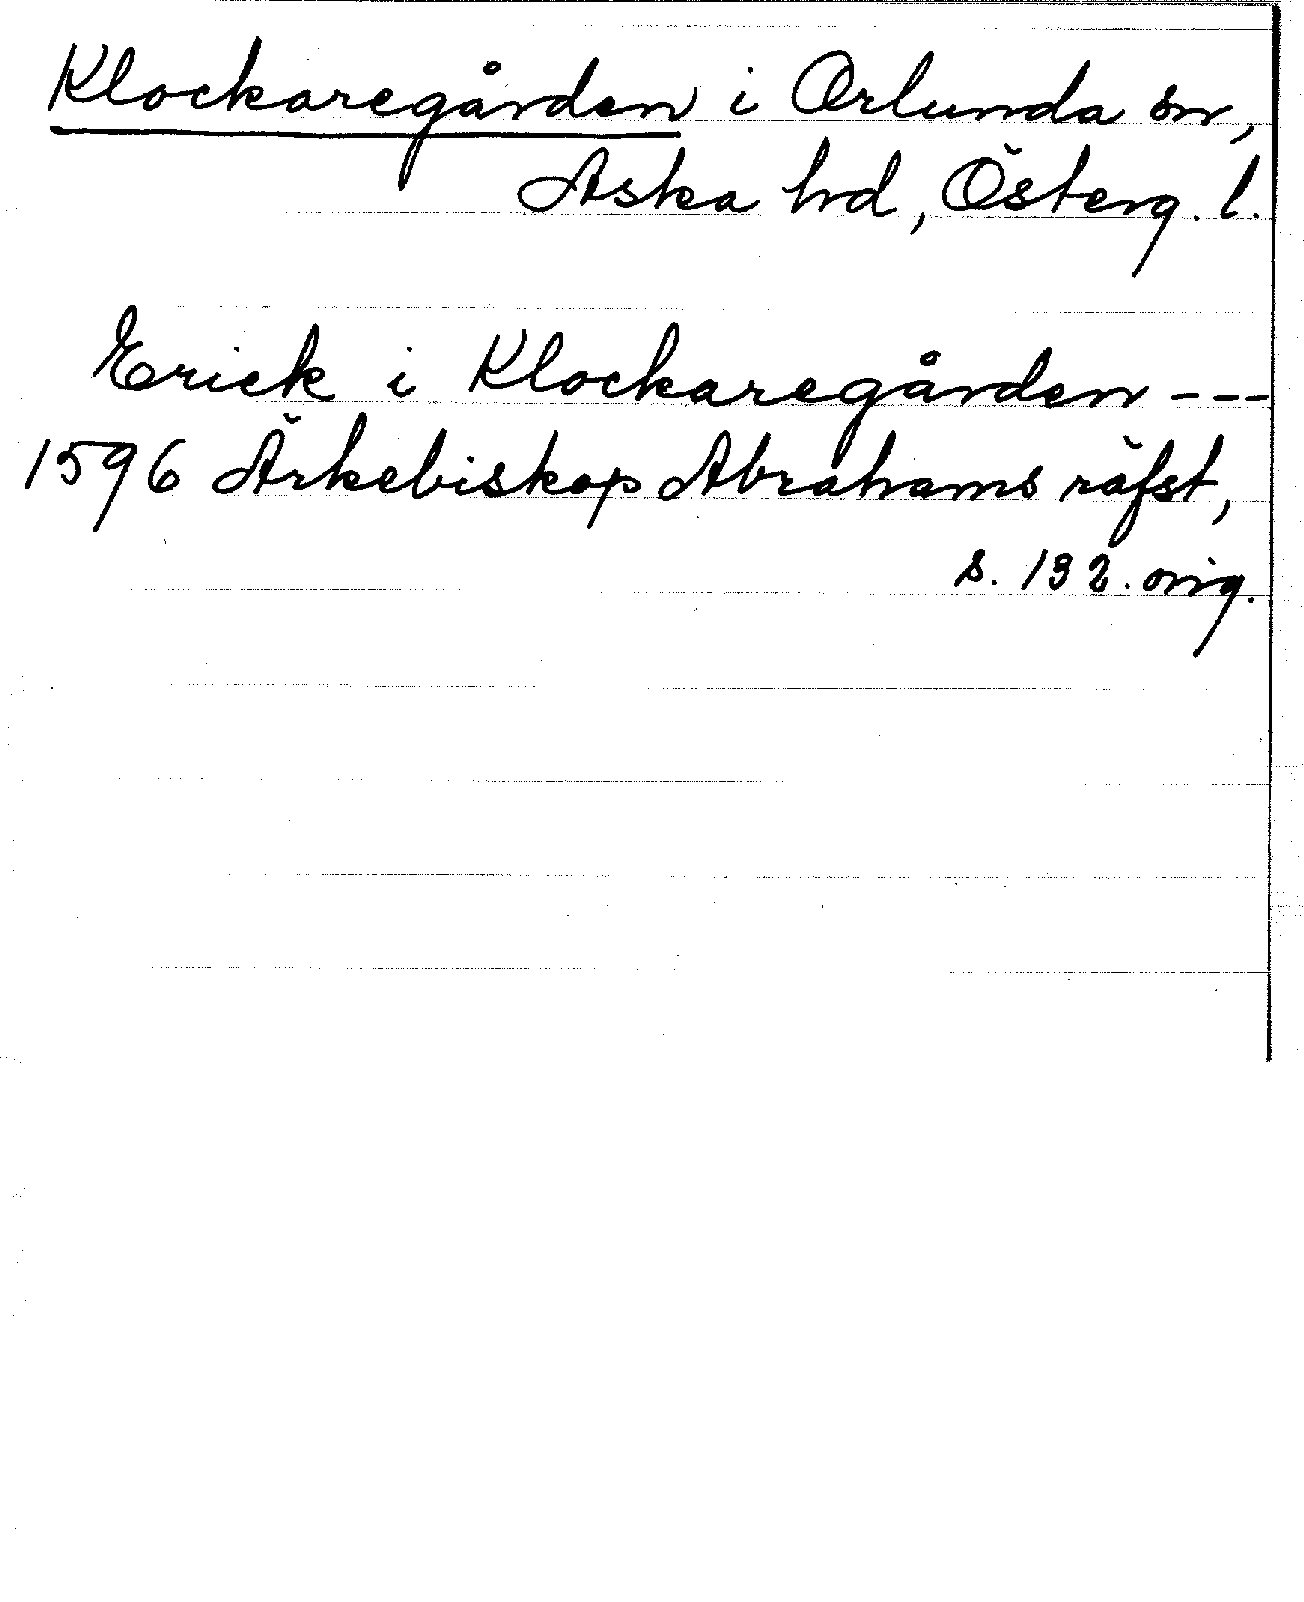 Klockaregården i Orlunda sn,
Aska hd, Österg. l.
Erick i Klockaregården ---
1596 Ärkebiskop Abrahams räfst,
s. 132. orig.